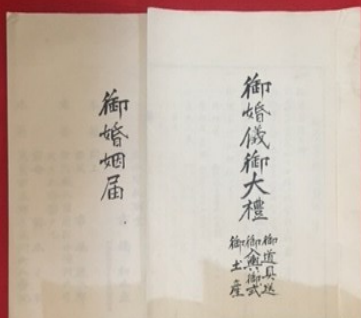 御婚儀御大禮
御道具送
御入輿御式
御土産
御婚姻届